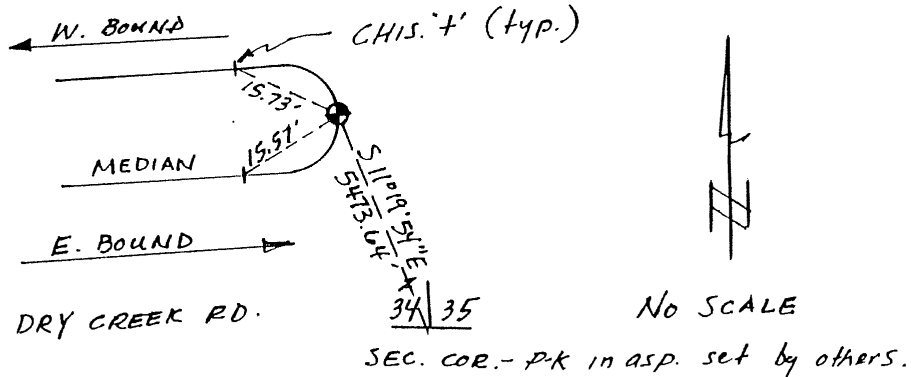 W. BOUND
CHIS. '+' (typ.)
15.73'
15.57'
MEDIAN
S 11°19'54"E
5473.64'
E. BOUND
34 35
DRY CREEK RD.
N
NO SCALE
SEC. COR.- P-K in asp. set by others.